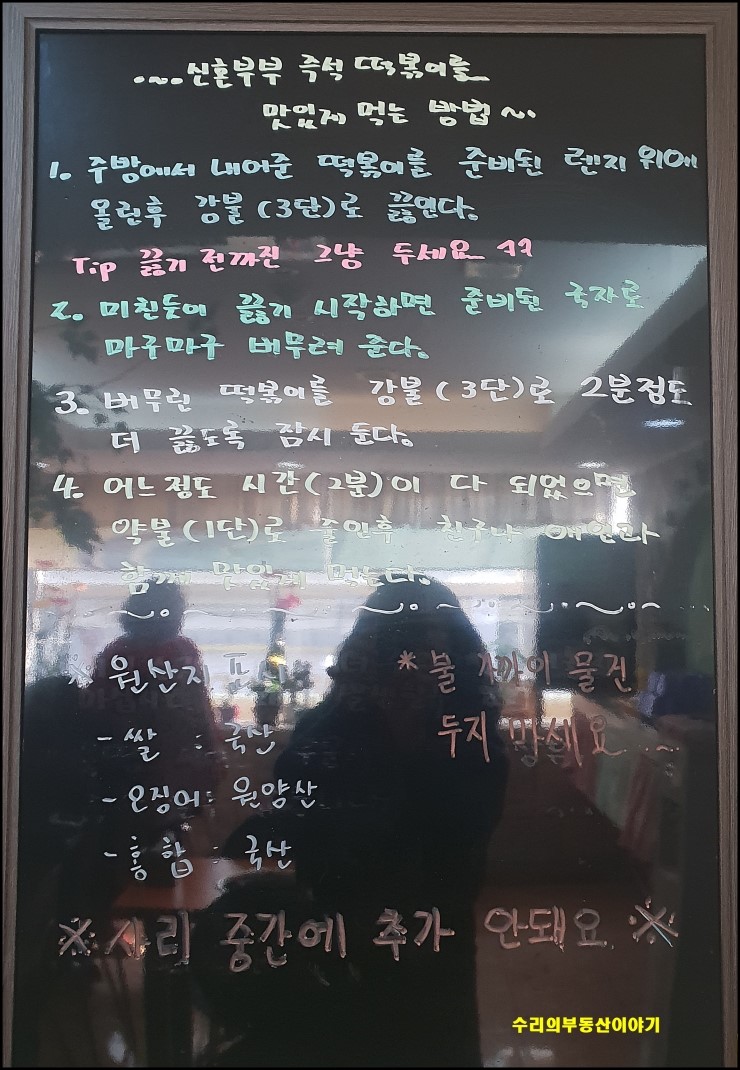 ~~ 신혼부부 즉석 떡볶이를
맛있게 먹는 방법 ~
1. 주방에서 내어준 떡볶이를 준비된 렌지 위에
올린후 강불(3단)로 끓인다.
Tip 끓기 전까진 그냥 두세요 ^^
2. 미친듯이 끓기 시작하면 준비된 국자로
마구마구 버무려 준다.
3. 버무린 떡볶이를 강불(3단)로 2분정도
더 끓도록 잠시 둔다.
4. 어느정도 시간(2분)이 다 되었으면
약불(1단)로 줄인후 친구나 애인과
함께 맛있게 먹는다.
※ 원산지 표시
- 쌀 : 국산
- 오징어 : 원양산
- 홍합 : 국산
* 불 가까이 물건
두지 마세요 ~
※ 사리 중간에 추가 안돼요 ※
수리의부동산이야기